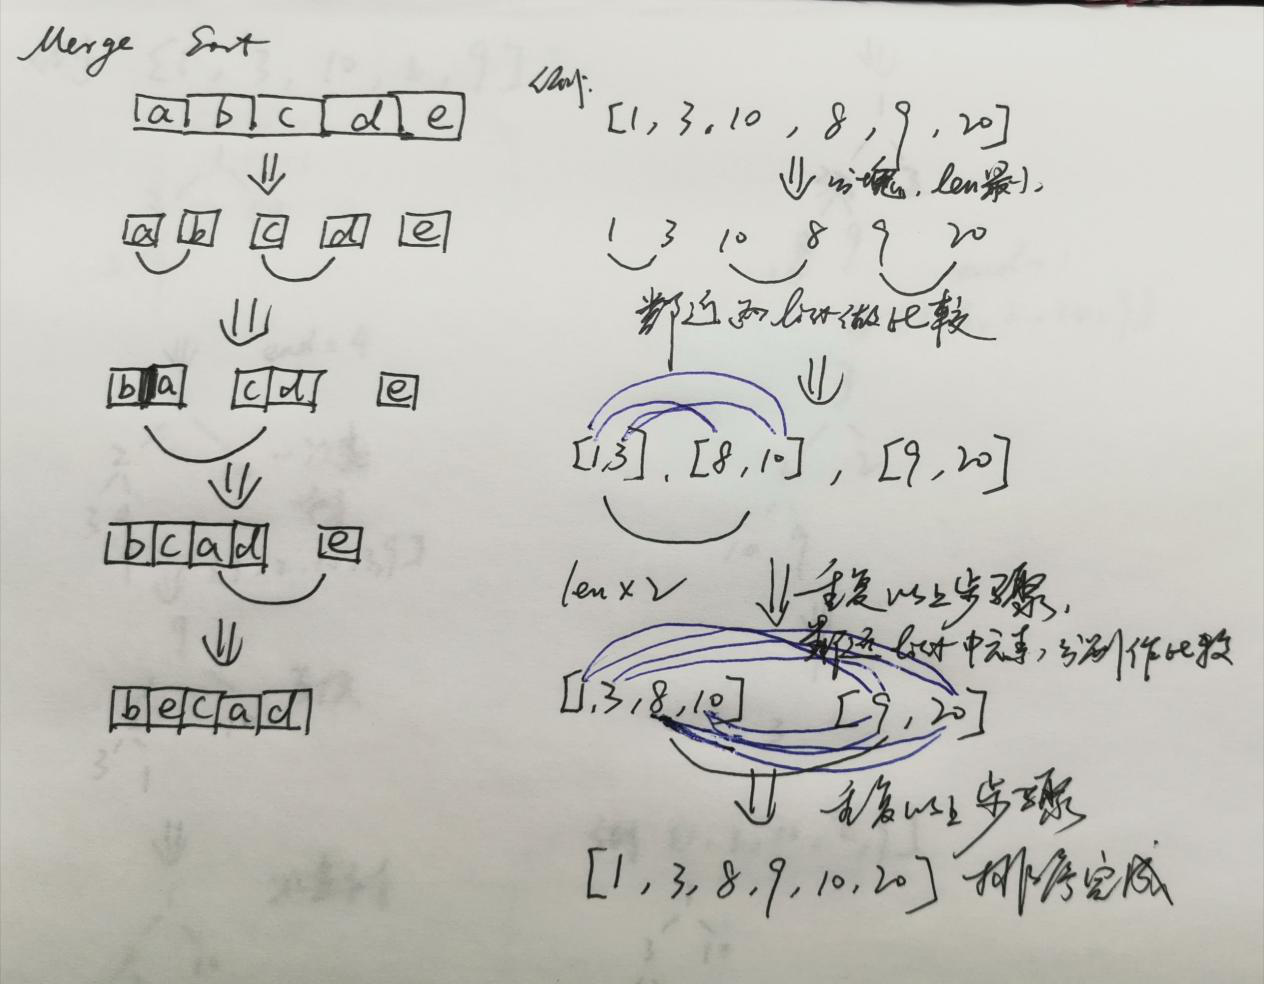 Merge Sort
a b c d e
a b c d e
b a c d e
b c a d e
b e c a d
例:
[1, 3, 10, 8, 9, 20]
分块, len最小,
1 3 10 8 9 20
邻近两list做比较
[1,3], [8,10], [9,20]
len×2
重复以上步骤,
邻近list中元素,分别作比较
[1,3,8,10] [9,20]
重复以上步骤
[1,3,8,9,10,20] 排序完成